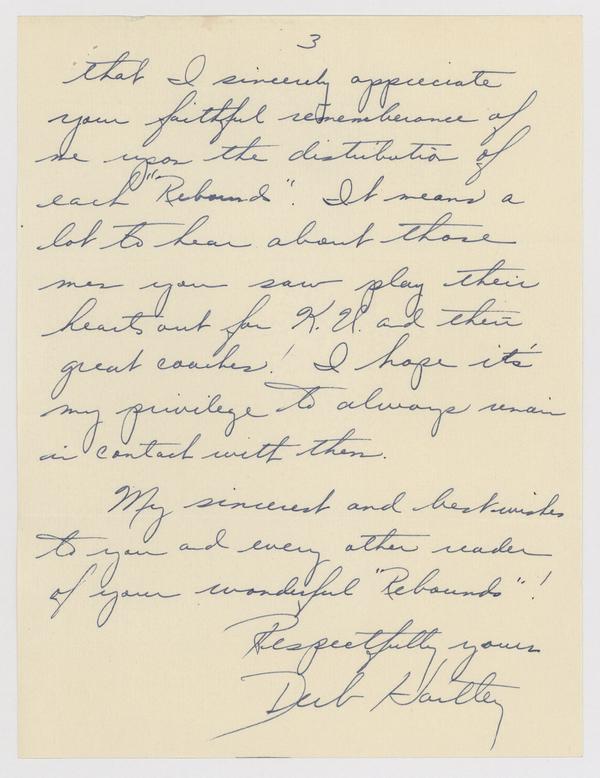 3
that I sincerely appreciate
your faithful rememberance of
me upon the distribution of
each "Rebounds". It means a
lot to hear about those
men you saw play their
hearts out for K.U. and their
great coaches! I hope it's
my privilege to always remain
in contact with them.
My sincerest and best wishes
to you and every other reader
of your wonderful "Rebounds"!
Respectfully yours
Hartley